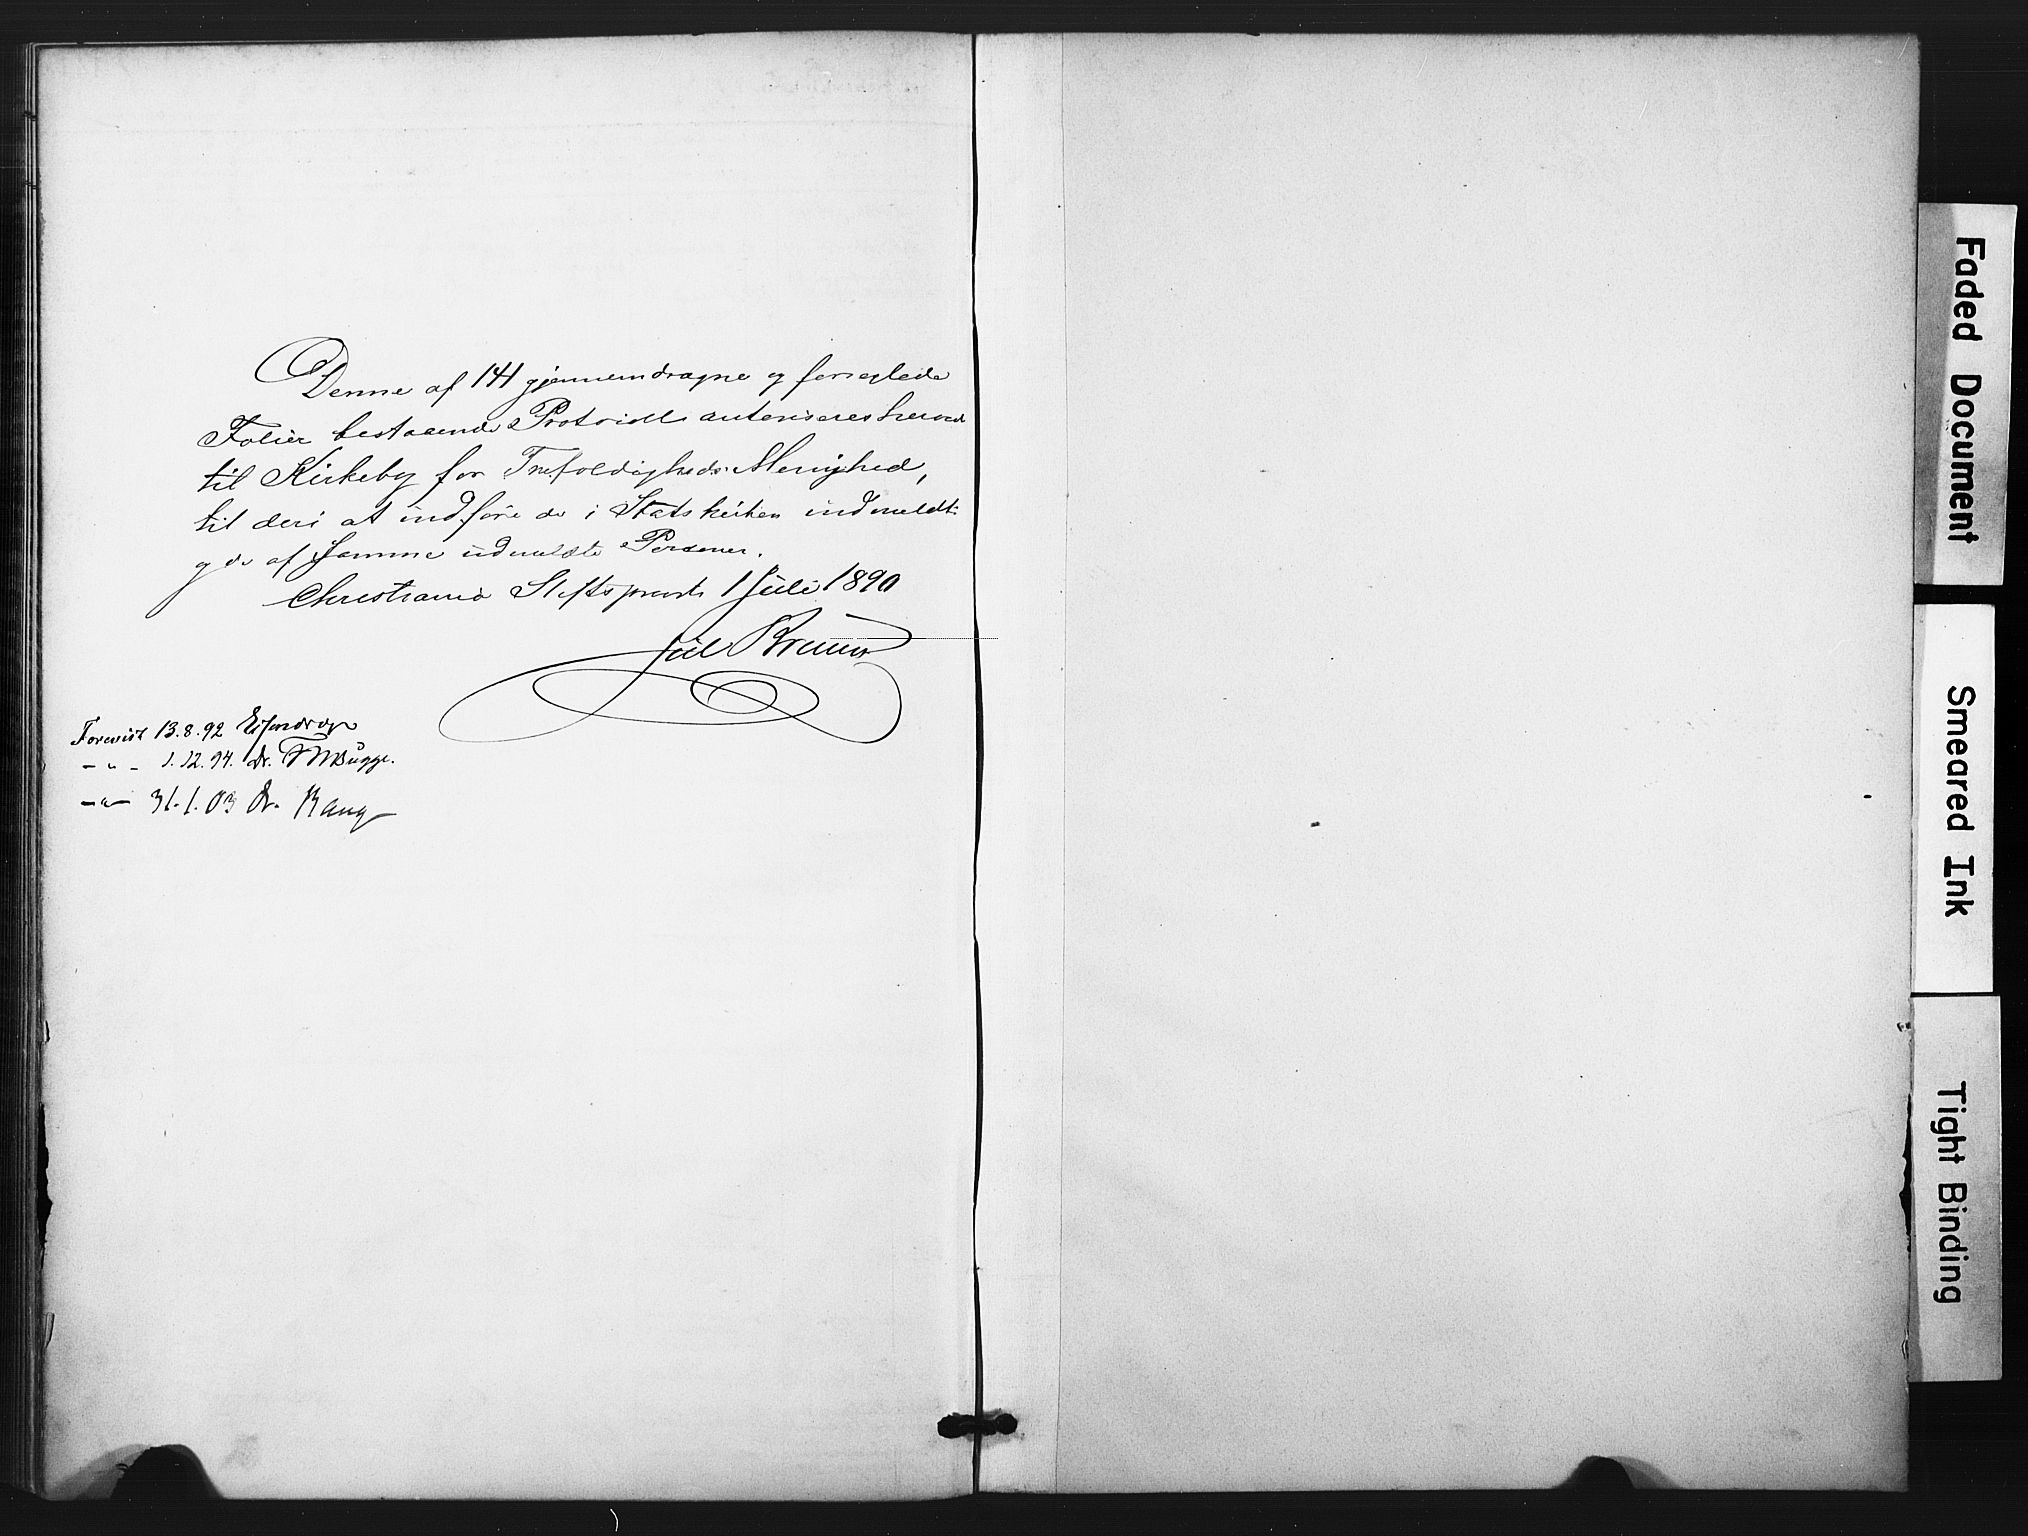 Denne af 141 gjennemdragne og forseglede
Folier bestaaende Protocoll autoriseres herved
til Kirkebog for Trefoldigheds Menighed,
til deri at indføre de i Statskirken indmeldte
og de af Samme udmeldte Personer.
Christiania Stiftsprovsti 1 Juli 1890
Jul Bruun
Forevist 13.8.92
-"- 1.12.94. Dr. FWBugge.
-"- 31.1.03 Dr. Bang
Faded Document
Smeared Ink
Tight Binding